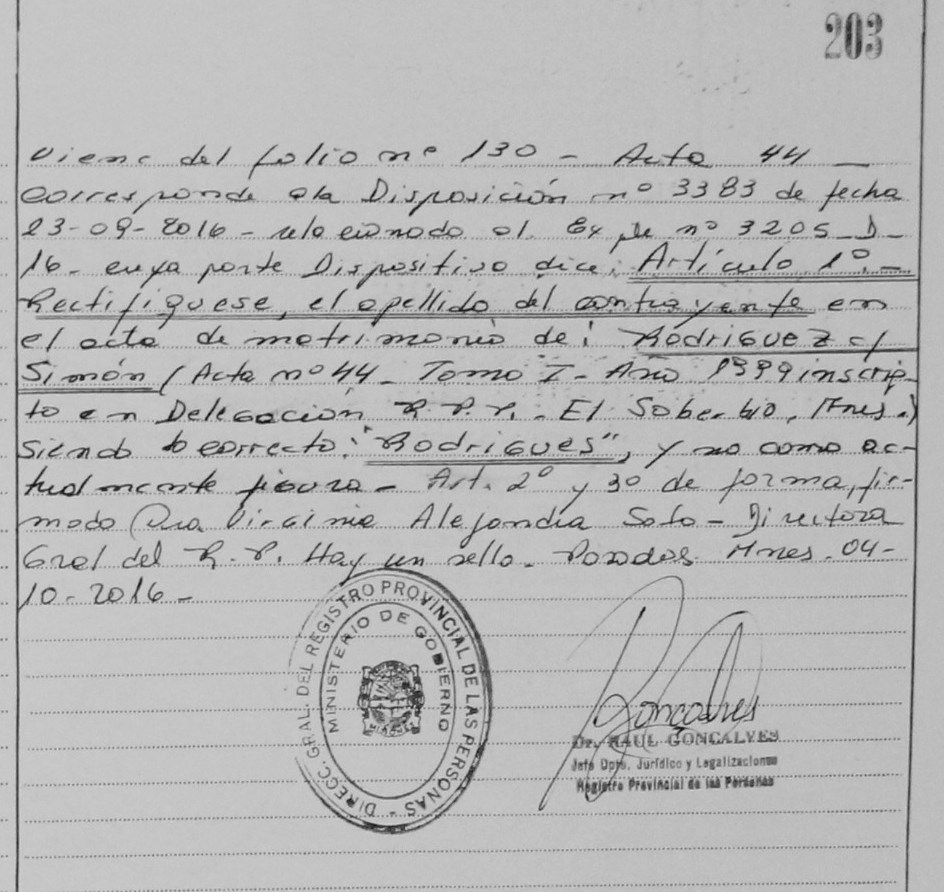 203
Viene del folio nº 130 - Acta 44 -
corresponde a la Disposición nº 3383 de fecha
23-09-2016 - relacionado al Expte nº 3205-D-
16- cuya parte Dispositiva dice: Artículo 1º.-
Rectifíquese, el apellido del contrayente en
el acta de matrimonio de: Rodriguez c/
Simón (Acta nº 44 - Tomo I - Año 1999 inscrip-
to en Delegación R.P.P. - El Soberbio, Mnes.)
siendo lo correcto: "Rodrigues", y no como ac-
tualmente figura - Art. 2º y 3º de forma, fir-
mado Dra Virginia Alejandra Soto - Directora
Gral del R.P. Hay un sello - Posadas Mnes - 04-
10-2016 -
DIRECC. GRAL. DEL REGISTRO PROVINCIAL DE LAS PERSONAS -
MINISTERIO DE GOBIERNO
Goncalves
Dr. RAUL GONCALVES
Jefe Dpto. Jurídico y Legalizaciones
Registro Provincial de las Personas